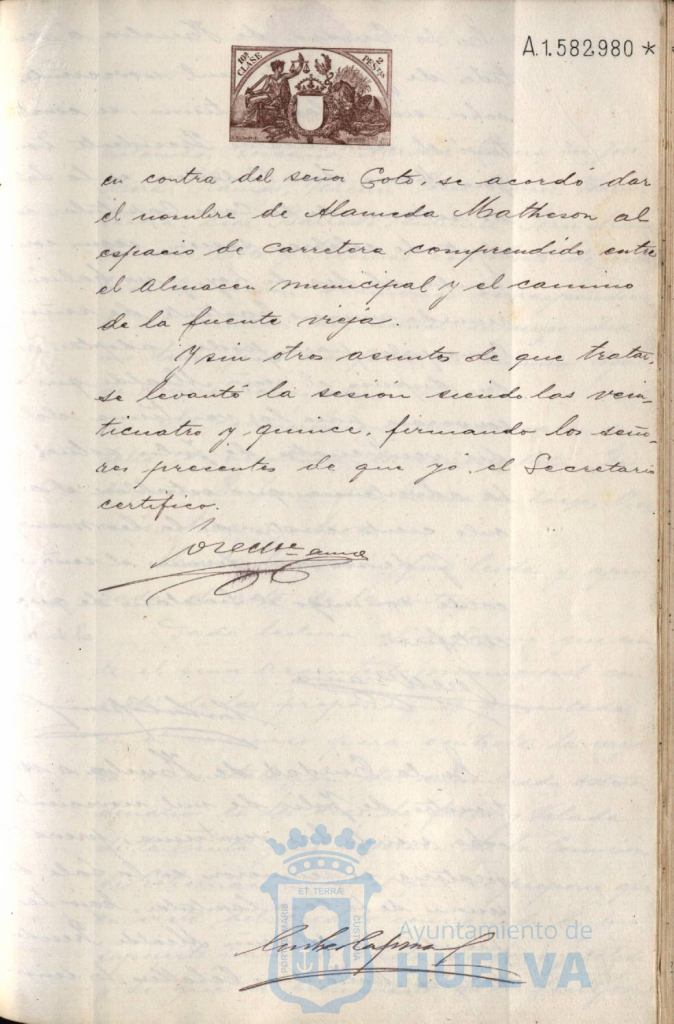 A.1.582.980 *
10ª CLASE
2 PESTAS
en contra del señor Coto, se acordó dar
el nombre de Alameda Matheson al
espacio de carretera comprendido entre
el Almacen municipal y el camino
de la fuente vieja.
Y sin otros asuntos de que tratar,
se levantó la sesión siendo las vein-
ticuatro y quince, firmando los seño-
res presentes de que yó, el Secretario
certifico.
ET TERRÆ
PORTUS MARIS
CUSTODIA
Ayuntamiento de
HUELVA